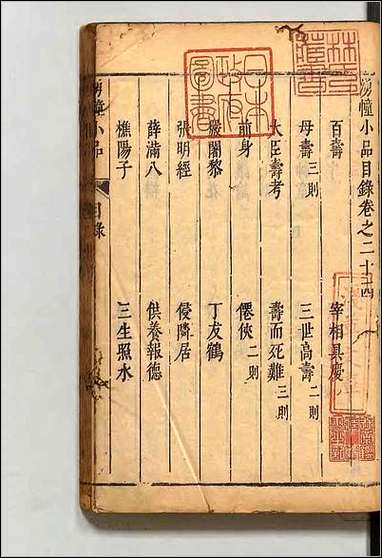 湧幢小品目錄卷之二十四
百壽 宰相具慶
母壽三則 三世高壽二則
大臣壽考 壽而死難三則
前身 僊俠二則
嚴闍黎 丁友鶴
張明經 侵隣居
薛滿八 供養報德
樵陽子 三生照水
湧幢小品 目錄
日本政府圖書